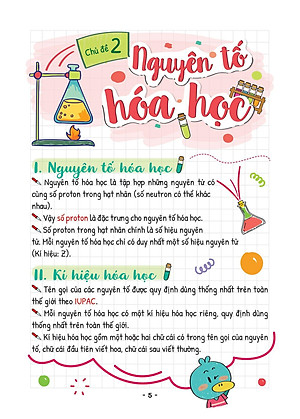 Chủ đề 2
Nguyên tố
hóa học
I. Nguyên tố hóa học
Nguyên tố hóa học là tập hợp những nguyên tử có
cùng số proton trong hạt nhân (số neutron có thể khác
nhau).
Vậy số proton là đặc trưng cho nguyên tố hóa học.
Số proton trong hạt nhân chính là số hiệu nguyên
tử. Mỗi nguyên tố hóa học chỉ có duy nhất một số hiệu nguyên tử
(Kí hiệu: Z).
II. Kí hiệu hóa học
Tên gọi của các nguyên tố được quy định dùng thống nhất trên toàn
thế giới theo IUPAC.
Mỗi nguyên tố hóa học có một kí hiệu hóa học riêng, quy định dùng
thống nhất trên toàn thế giới.
Kí hiệu hóa học gồm một hoặc hai chữ cái có trong tên gọi của nguyên
tố, chữ cái đầu tiên viết hoa, chữ cái sau viết thường.
- 5 -